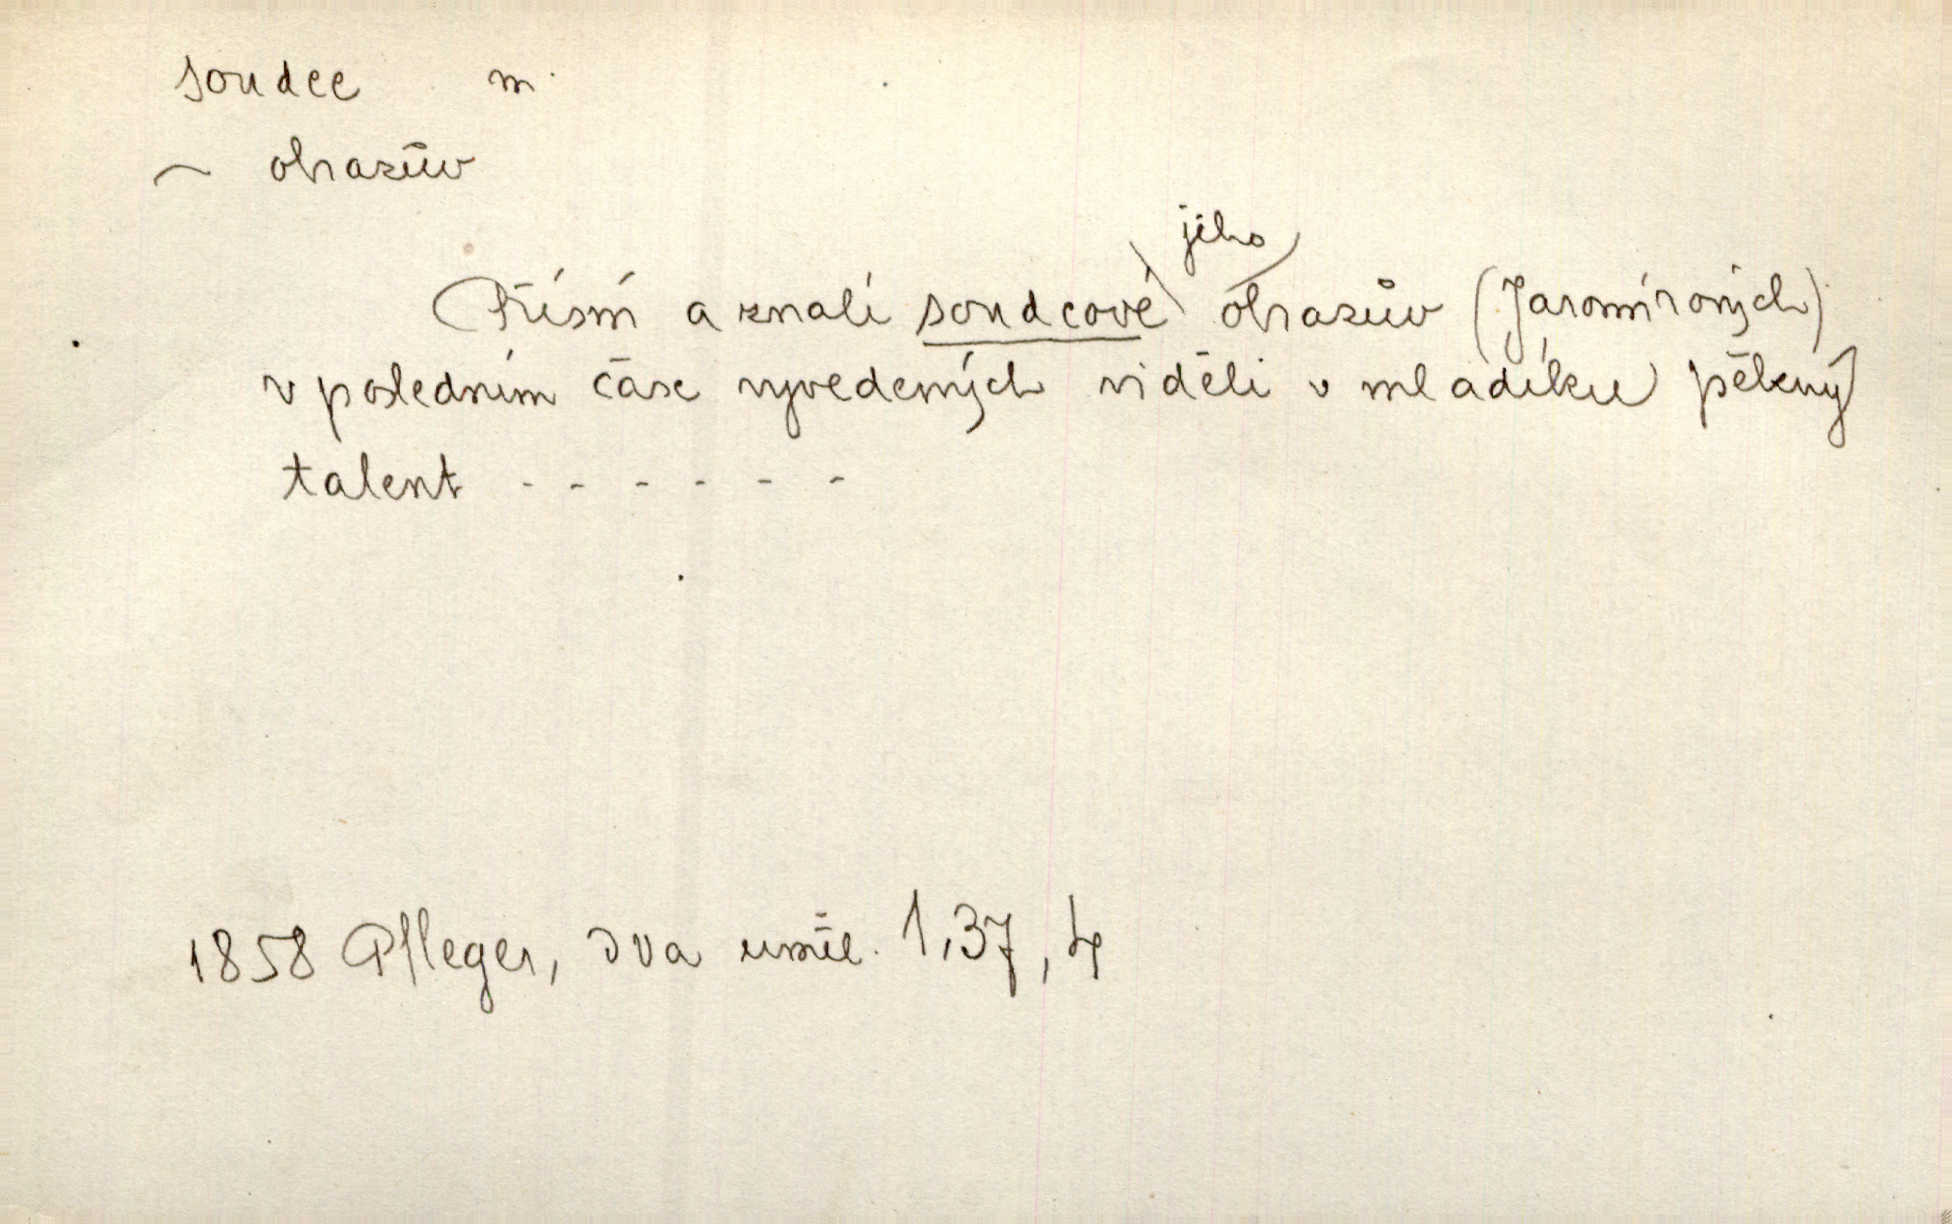 soudce m.
~ obrazův
Přísní a znalí soudcové jeho obrazův (Jaromírových)
v posledním čase vyvedených viděli v mladíku pěkný
talent - - - - - -
1858 Pfleger, Dva uměl. 1,37,4